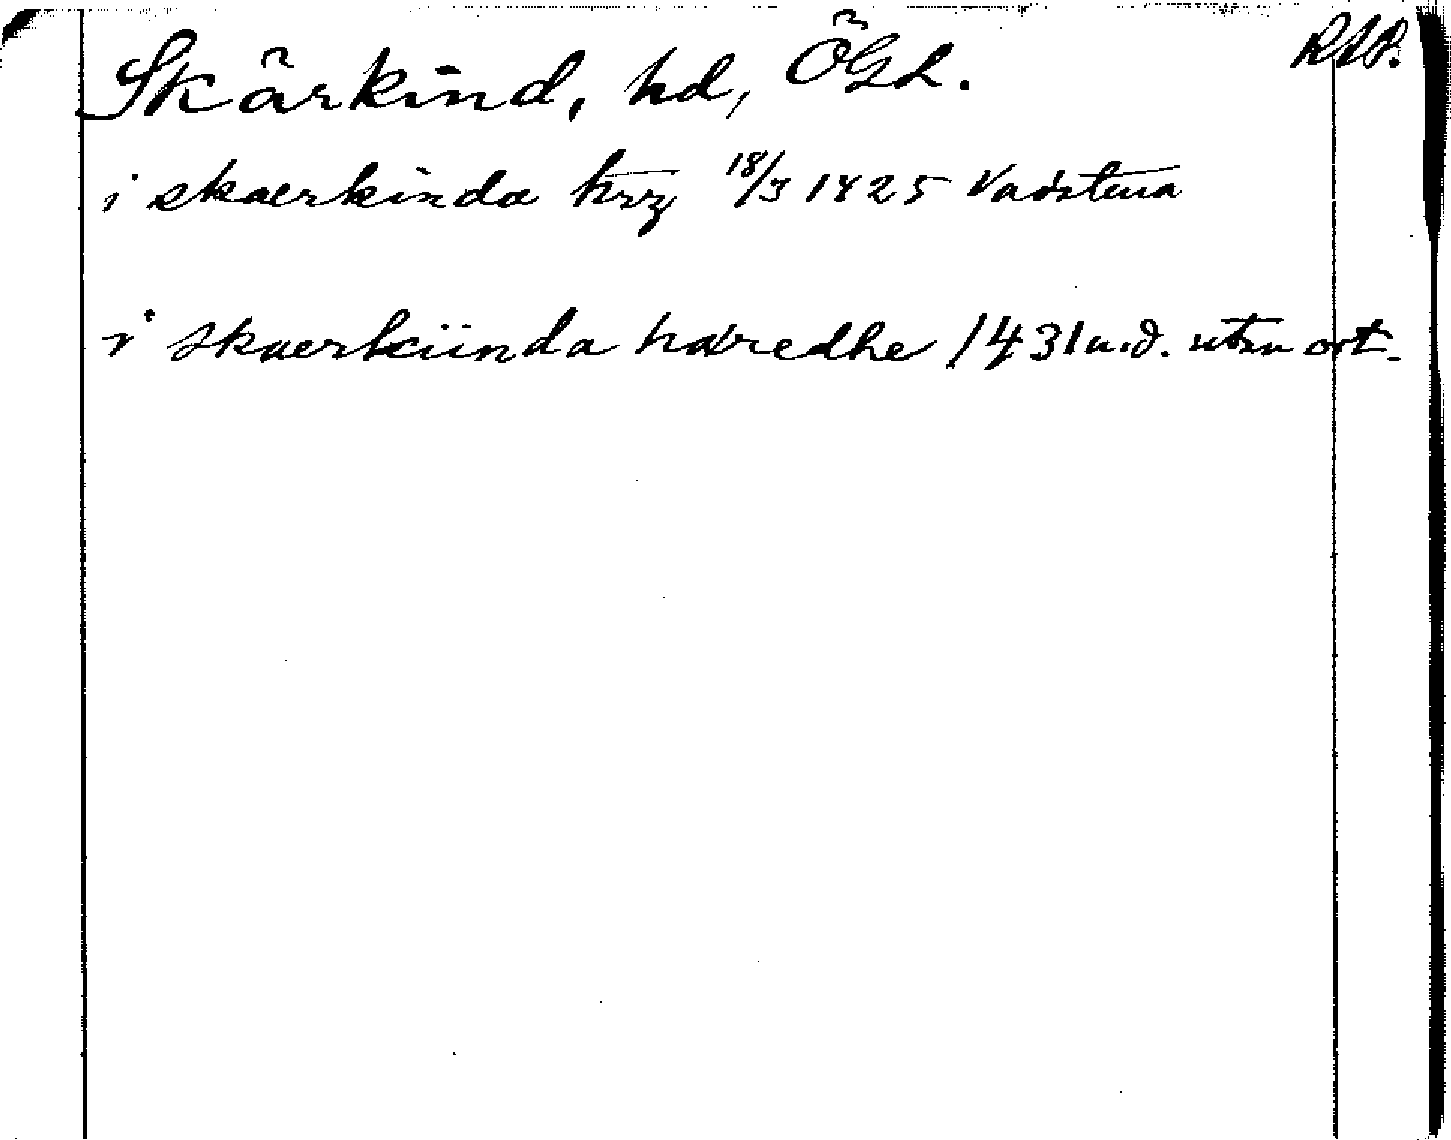 Skärkind, hd, ÖGL. RAP.
i skaerkinda hrz 18/3 1425 Vadstena
i skaerkiinda hæredhe 1431 u.d. utan ort.